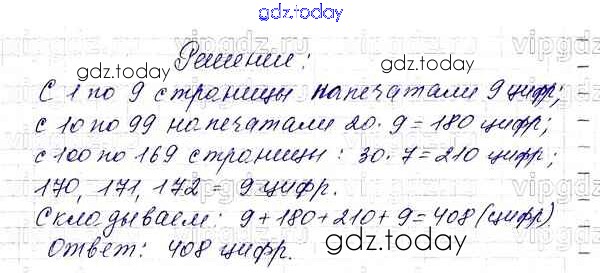 gdz.today
Решение:
gdz.today
С 1 по 9 страницы напечатали 9 цифр;
с 10 по 99 напечатали 20·9=180 цифр;
с 100 по 169 страницы: 30·7=210 цифр;
170, 171, 172 = 9 цифр.
Складываем: 9+180+210+9=408 (цифр)
Ответ: 408 цифр.
gdz.today